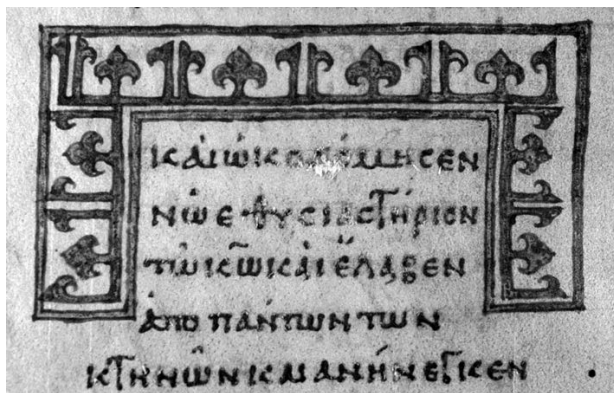 καὶ ὠικοδόμησεν
νῶε θυσιαστήριον
τῶι κ̅ω̅ι καὶ ἔλαβεν
ἀπο πάντων τῶν
κτηνῶν και ανήνεγκεν